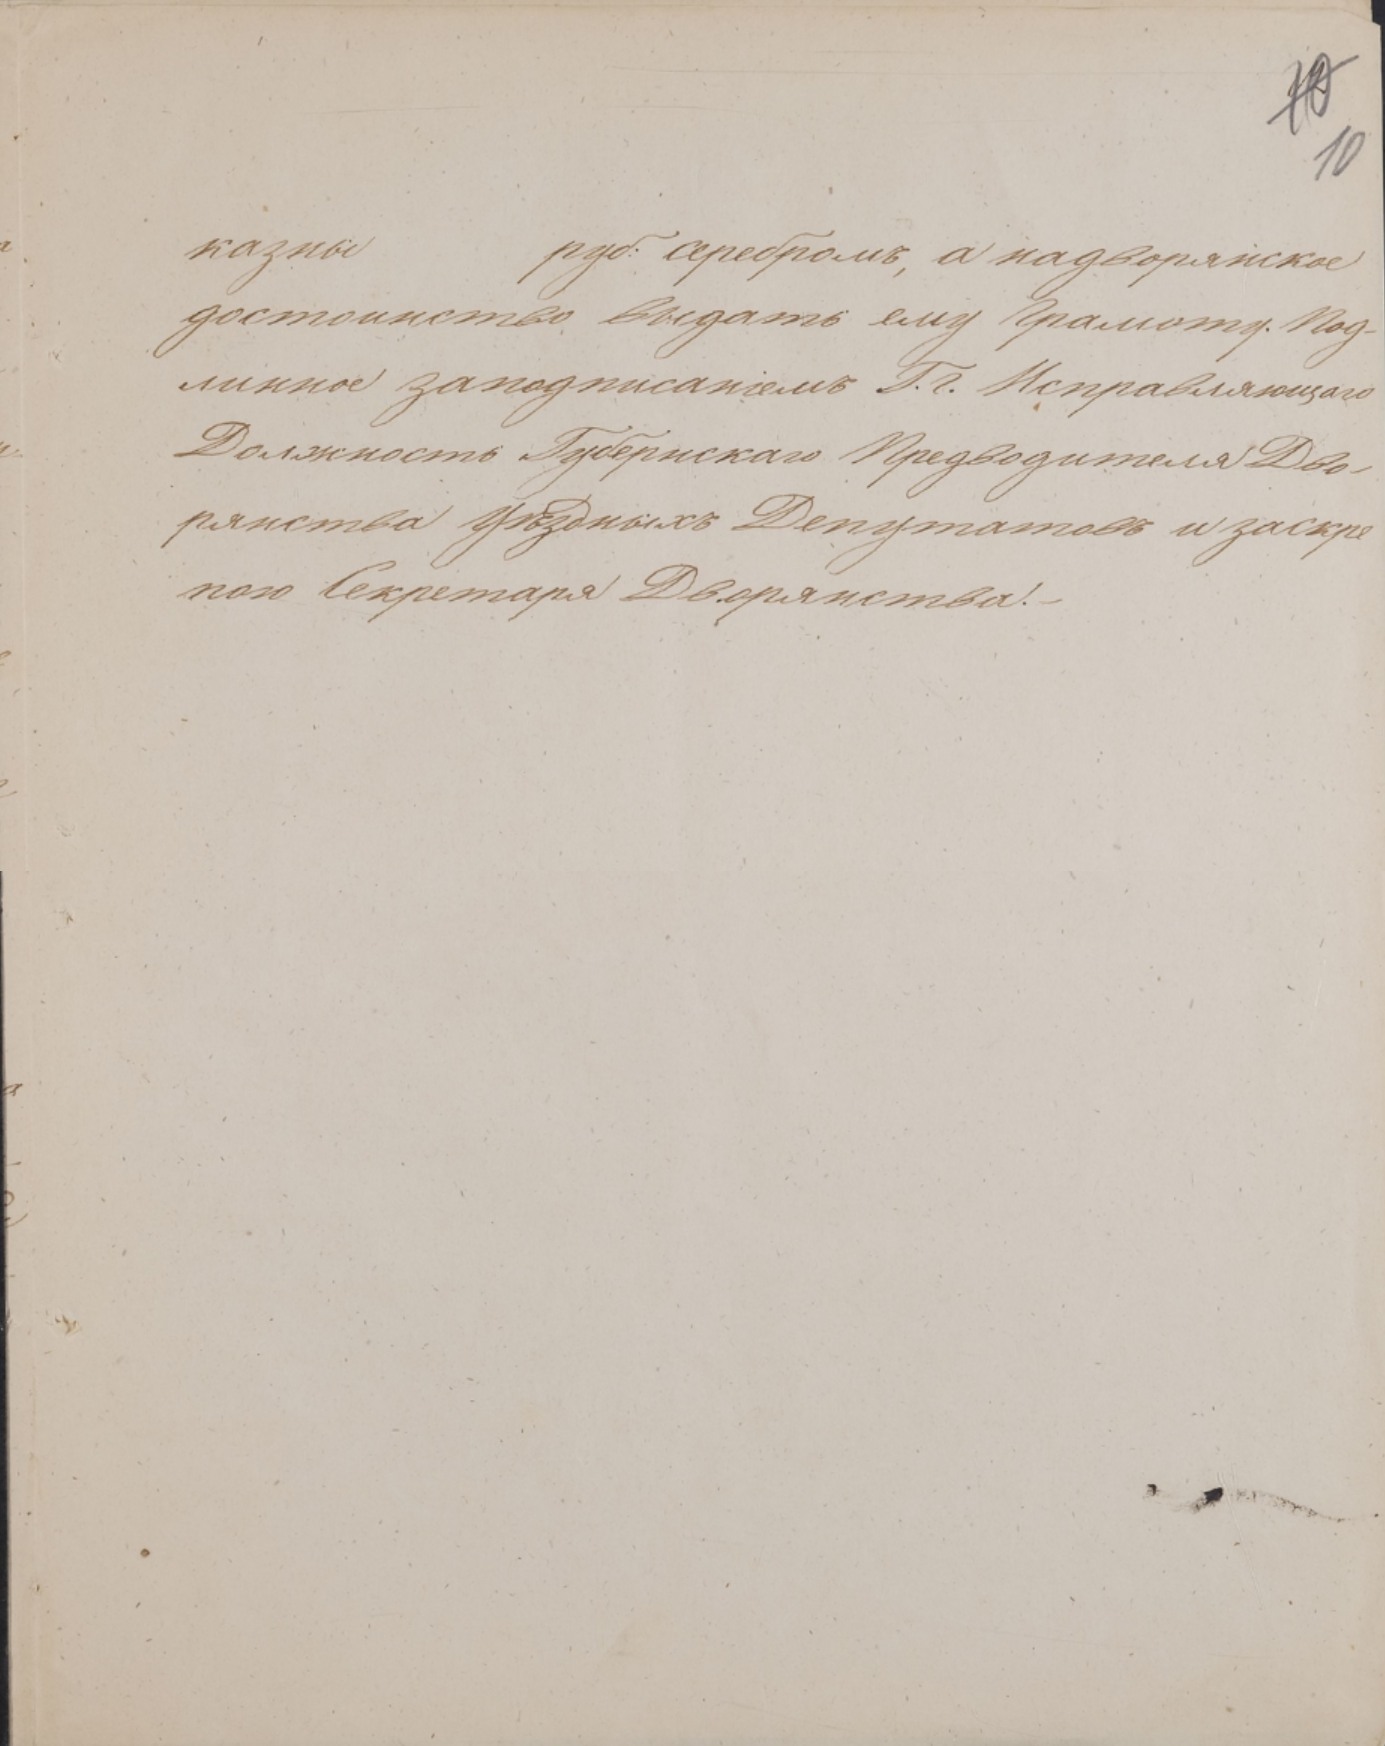 10
казны руб: серебромъ, а надворянское
достоинство выдать ему Грамоту. Под-
линное заподписаніемъ Г.г. Исправляющаго
Должность Губернскаго Предводителя Дво-
рянства Уѣздныхъ Депутатовъ и заскре
пою Секретаря Дворянства.-